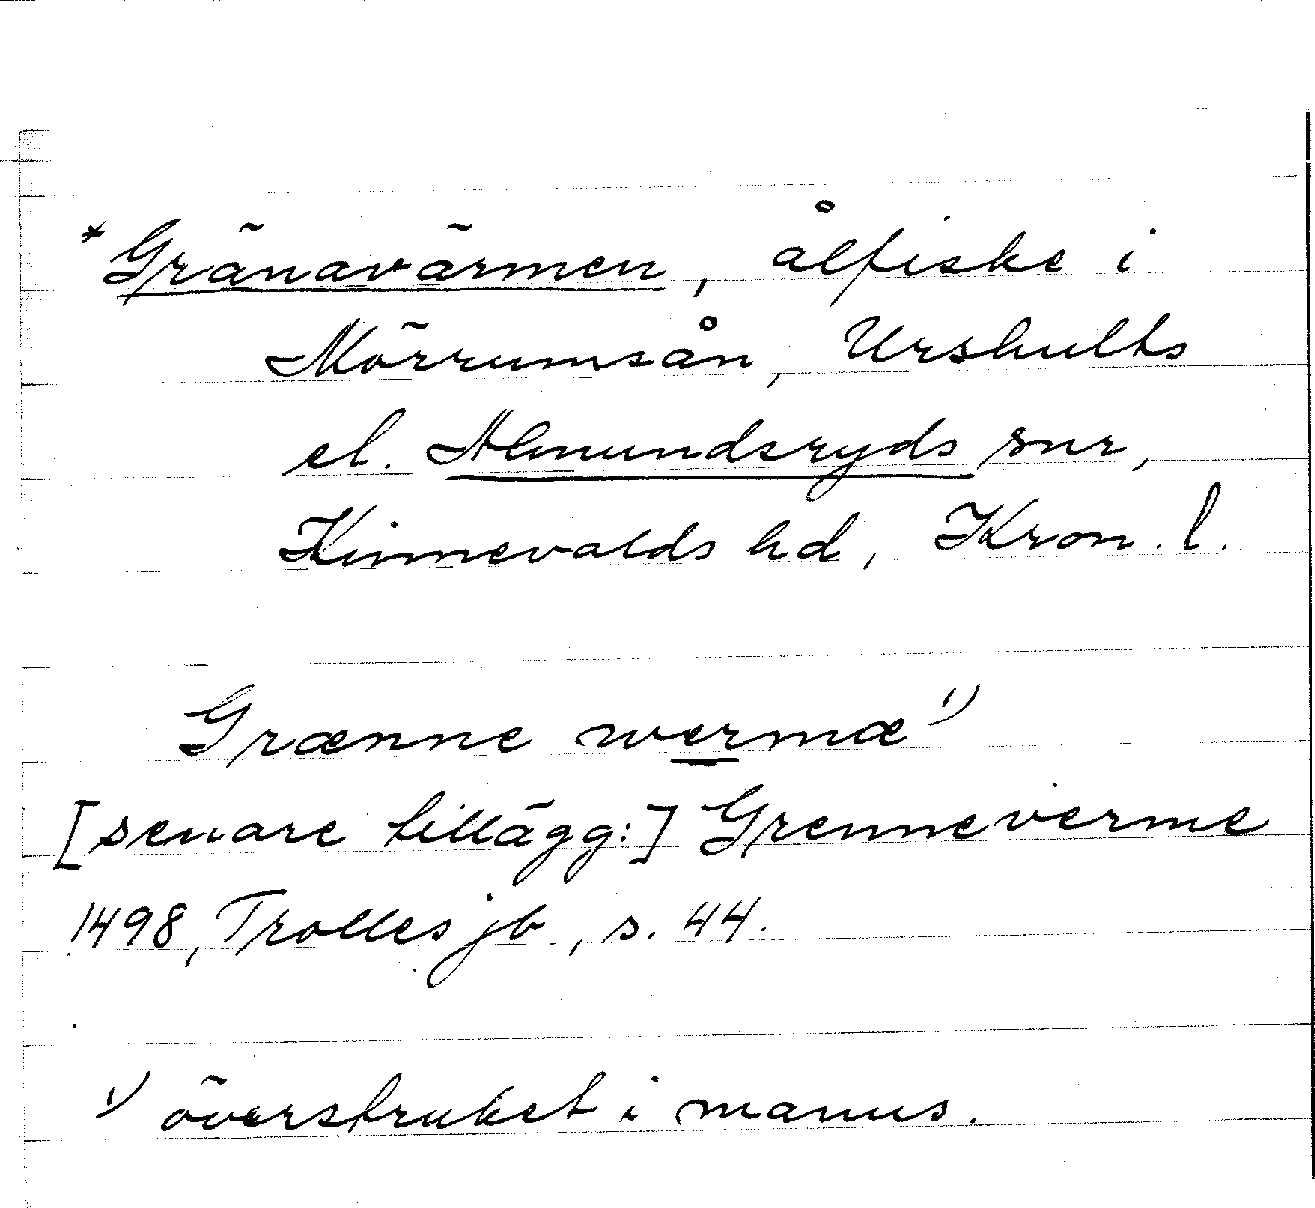 *Gränavärmen, ålfiske i
Mörrumsån, Urshults
el. Almundsryds snr,
Kinnevalds hd, Kron. l.
Grænne wermæ¹⁾
[senare tillägg:] Grenneverme
1498, Trolles jb, s. 44.
¹⁾ överstruket i manus.